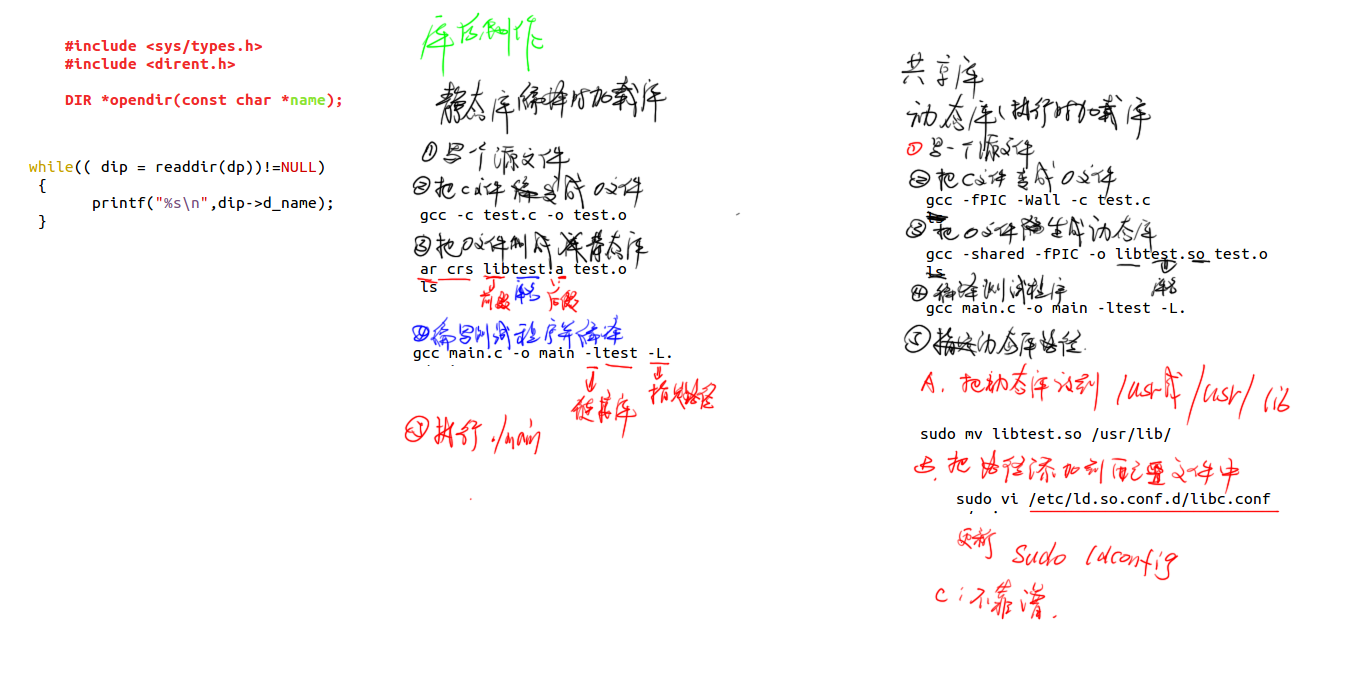 #include <sys/types.h>
#include <dirent.h>
DIR *opendir(const char *name);
while(( dip = readdir(dp))!=NULL)
{
printf("%s\n",dip->d_name);
}
库的制作
静态库 编译时加载库
①写个源文件
②把c文件 变成 o文件
gcc -c test.c -o test.o
③把o文件制成 静态库
ar crs libtest.a test.o
ls
前缀 库名 后缀
④编写测试程序并编译
gcc main.c -o main -ltest -L.
链接库 指定路径
⑤执行 ./main
共享库
动态库(执行时加载库
①写一个源文件
②把C文件变成O文件
gcc -fPIC -Wall -c test.c
③把o文件 生成动态库
gcc -shared -fPIC -o libtest.so test.o
ls
库名
④编译测试程序
gcc main.c -o main -ltest -L.
⑤指定动态库路径.
A. 把动态库放到 /usr或/usr/lib
sudo mv libtest.so /usr/lib/
B. 把路径添加到配置文件中
sudo vi /etc/ld.so.conf.d/libc.conf
更新 sudo ldconfig
C:不靠谱.